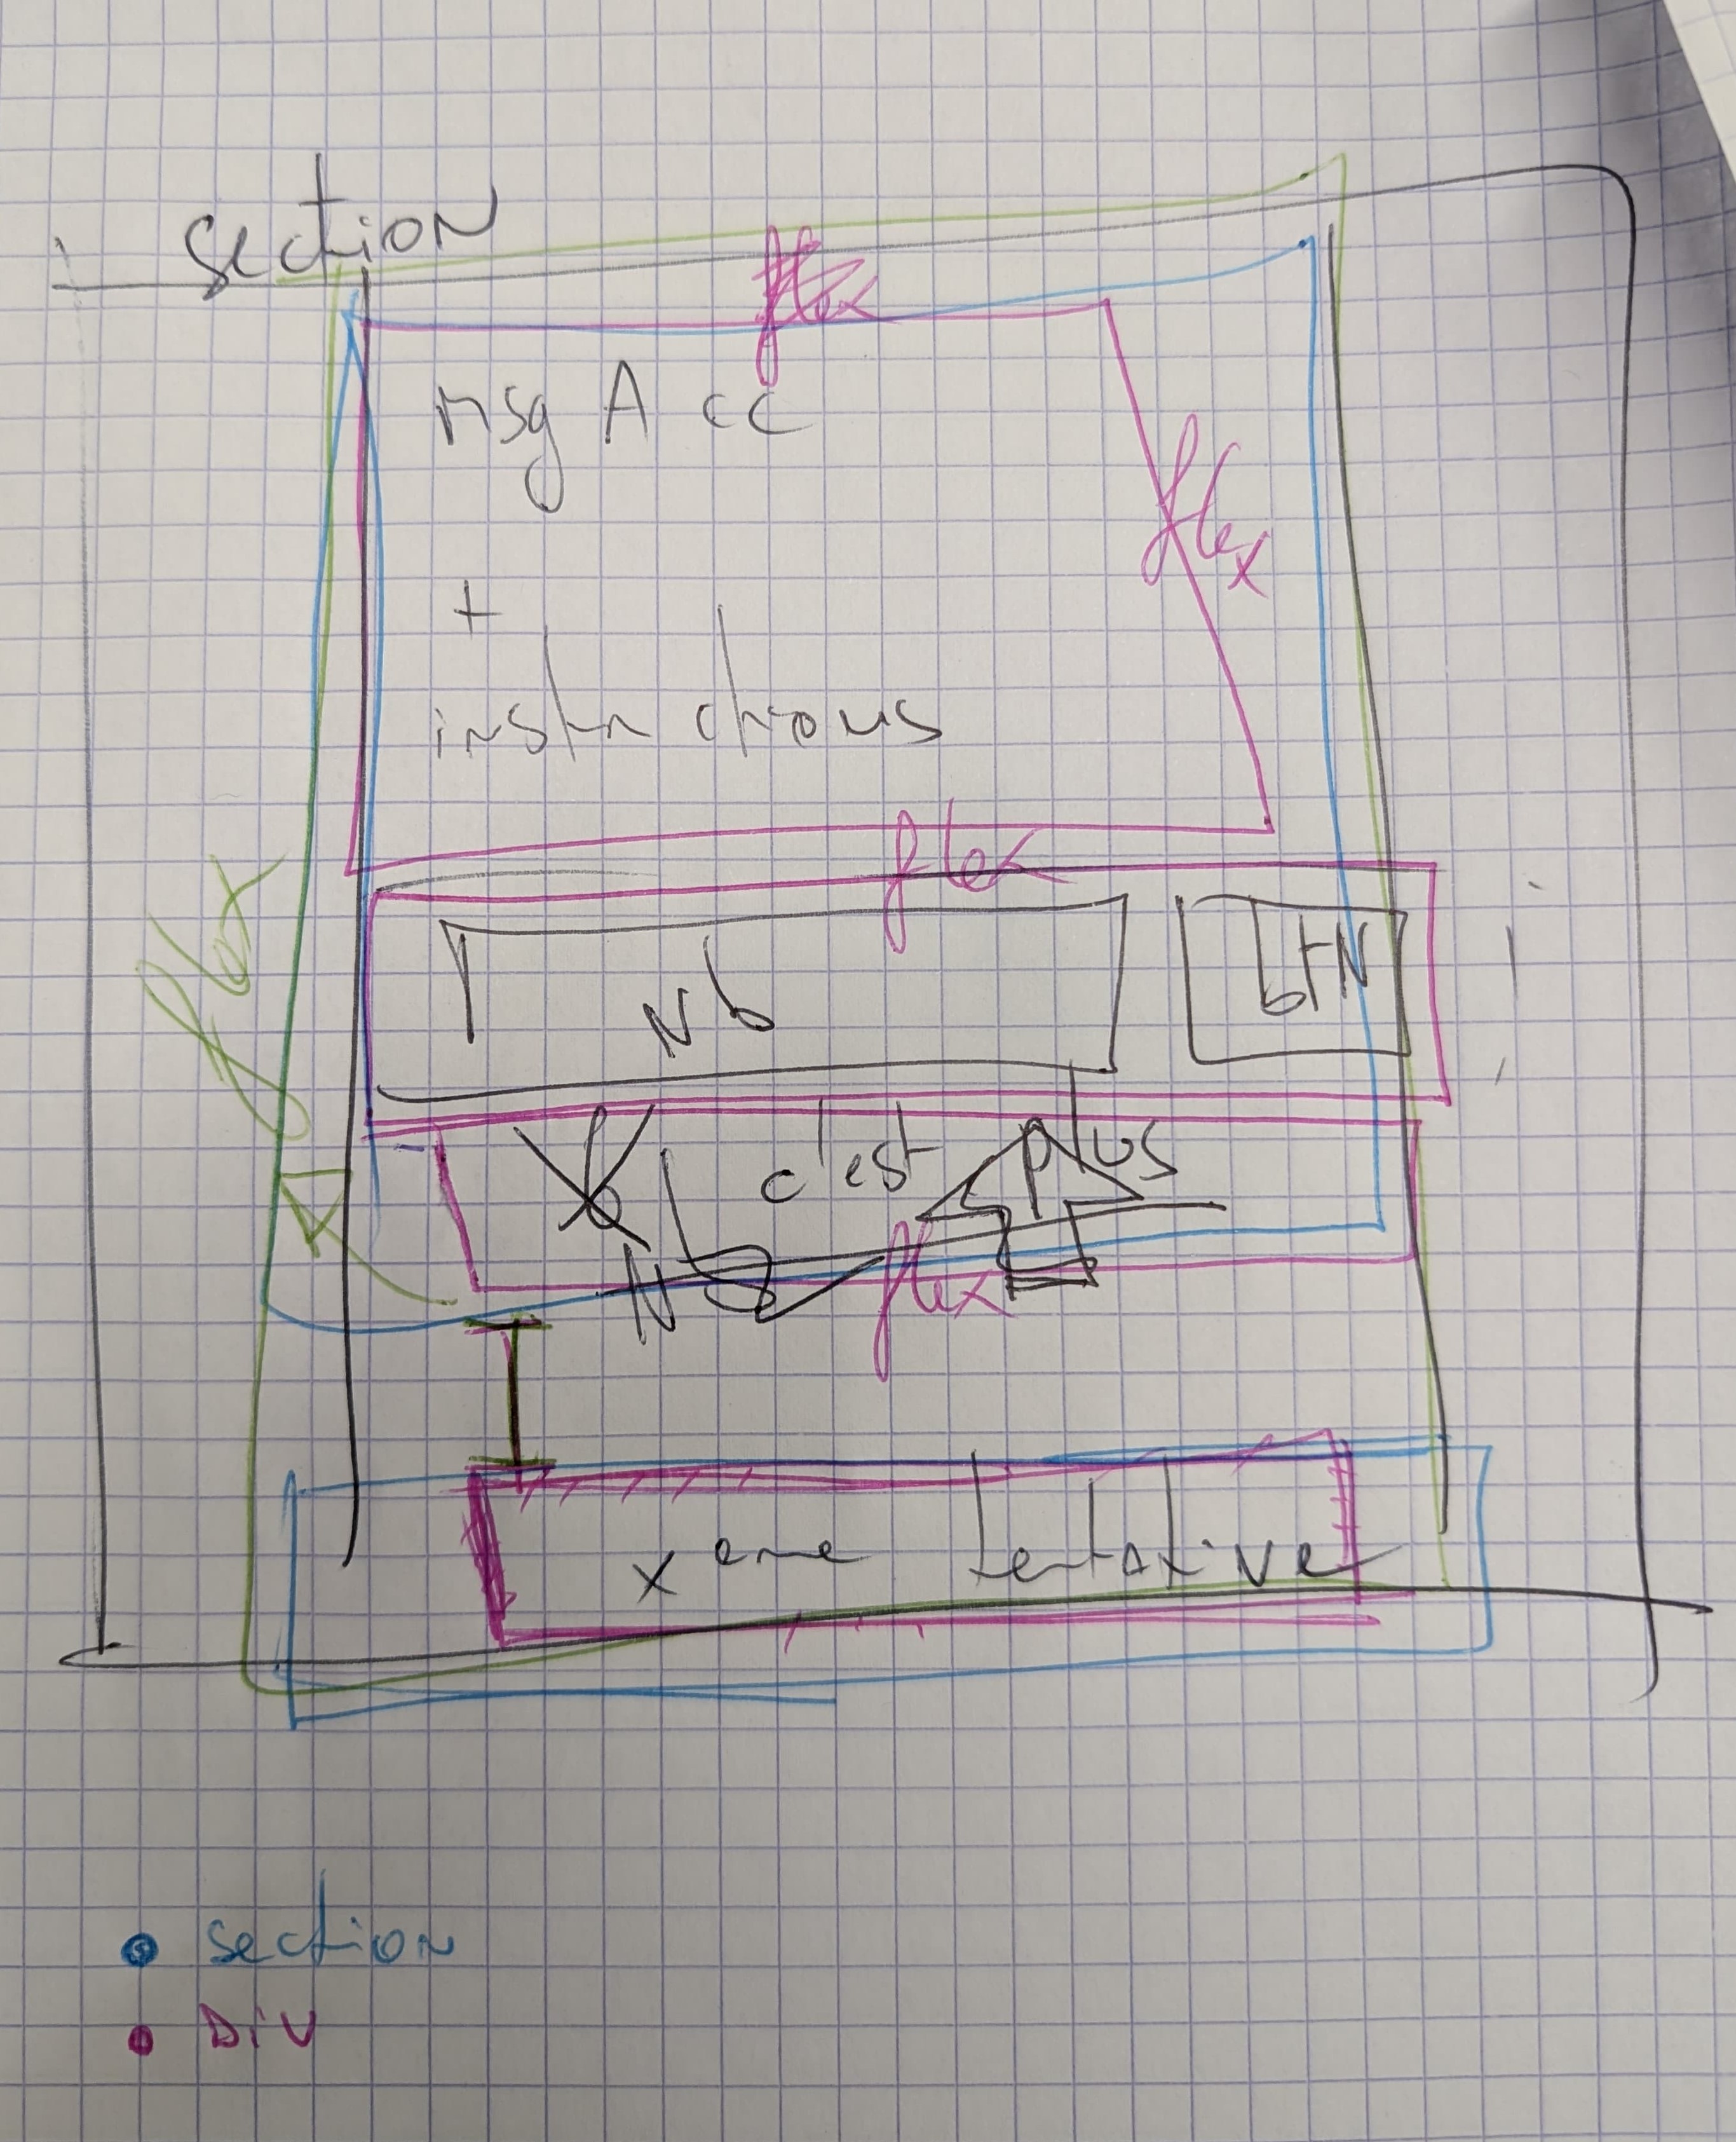 section
flex
msg Acc
flex
+
instructions
flex
flex
Nb
btN
c'est plus
flex
x eme tentative
section
Div